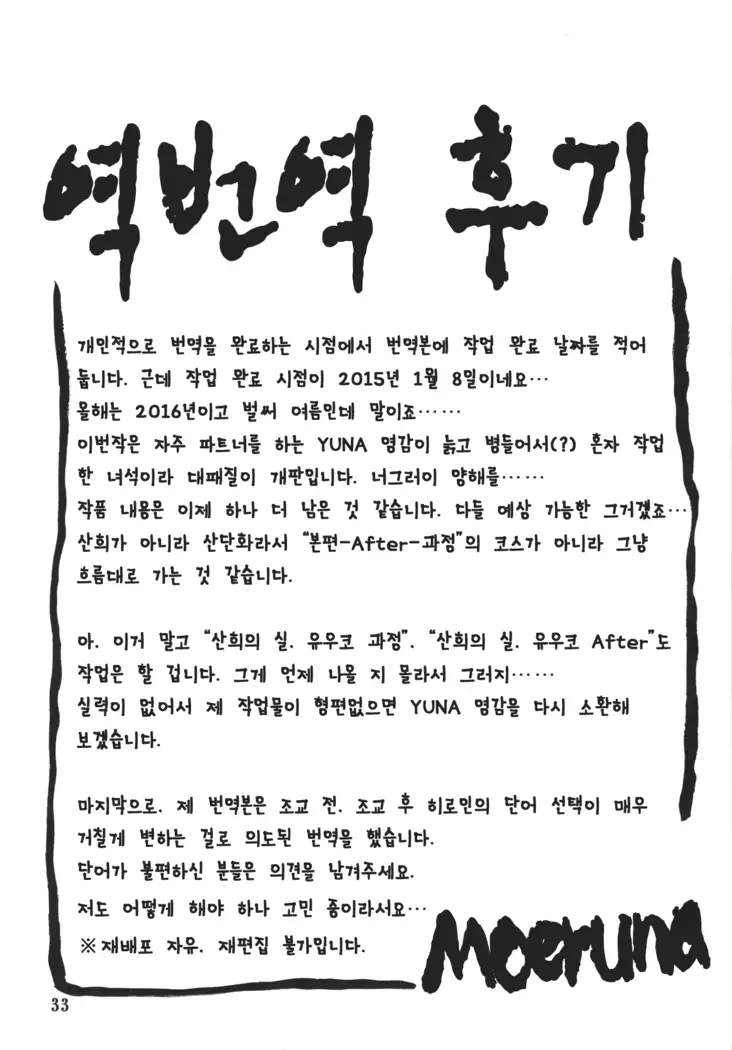 역번역 후기
개인적으로 번역을 완료하는 시점에서 번역본에 작업 완료 날짜를 적어
둡니다. 근데 작업 완료 시점이 2015년 1월 8일이네요…
올해는 2016년이고 벌써 여름인데 말이죠……
이번작은 자주 파트너를 하는 YUNA 영감이 늙고 병들어서(?) 혼자 작업
한 녀석이라 대패질이 개판입니다. 너그러이 양해를……
작품 내용은 이제 하나 더 남은 것 같습니다. 다들 예상 가능한 그거겠죠…
산희가 아니라 산단화라서 “본편-After-과정”의 코스가 아니라 그냥
흐름대로 가는 것 같습니다.
아. 이거 말고 “산희의 실. 유우코 과정”. “산희의 실. 유우코 After”도
작업은 할 겁니다. 그게 언제 나올 지 몰라서 그러지……
실력이 없어서 제 작업물이 형편없으면 YUNA 영감을 다시 소환해
보겠습니다.
마지막으로. 제 번역본은 조교 전. 조교 후 히로인의 단어 선택이 매우
거칠게 변하는 걸로 의도된 번역을 했습니다.
단어가 불편하신 분들은 의견을 남겨주세요.
저도 어떻게 해야 하나 고민 중이라서요…
※재배포 자유. 재편집 불가입니다.
Moeruna
33